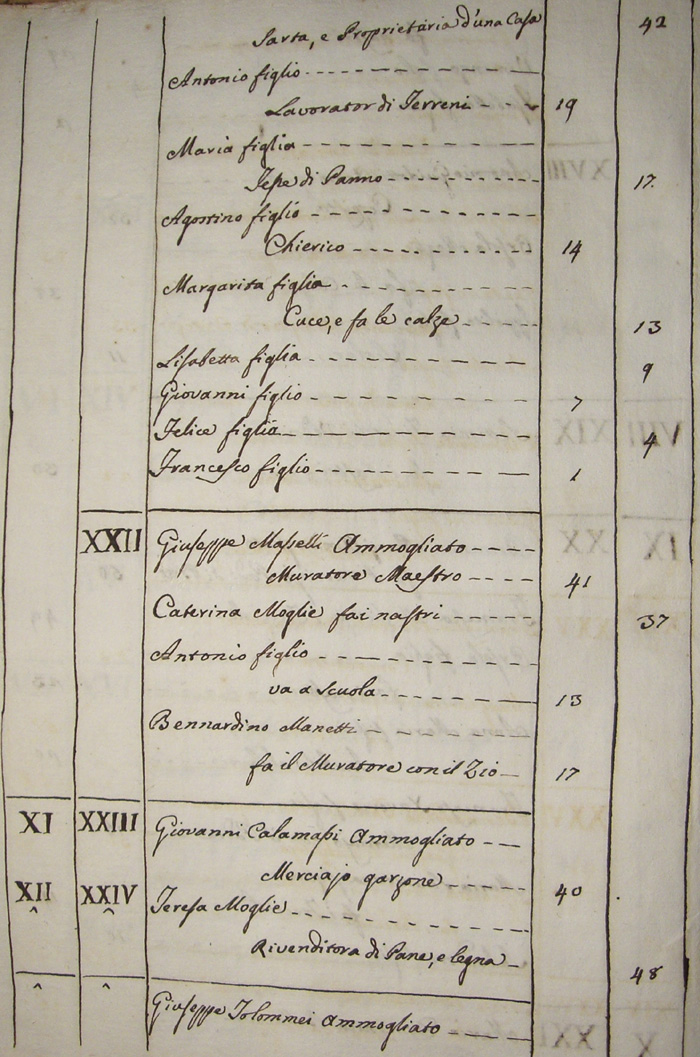 Sarta, e Proprietaria d'una Casa 42
Antonio figlio
Lavorator di Terreni 19
Maria figlia
Tesse di Panno 17.
Agostino figlio
Chierico 14
Margarita figlia
Cuce, e fa le calze 13
Lisabetta figlia 9
Giovanni figlio 7
Felice figlia 4
Francesco figlio 1
XXII Giuseppe Masselli Ammogliato
Muratore Maestro 41
Caterina Moglie fa i nastri 37
Antonio figlio
va a scuola 13
Bennardino Manetti
fa il Muratore con il Zio 17
XI XXIII Giovanni Calamassi Ammogliato
Merciajo garzone 40
XII XXIV Teresa Moglie
Rivenditora di Pane, e legna 48
Giuseppe Tolommei Ammogliato